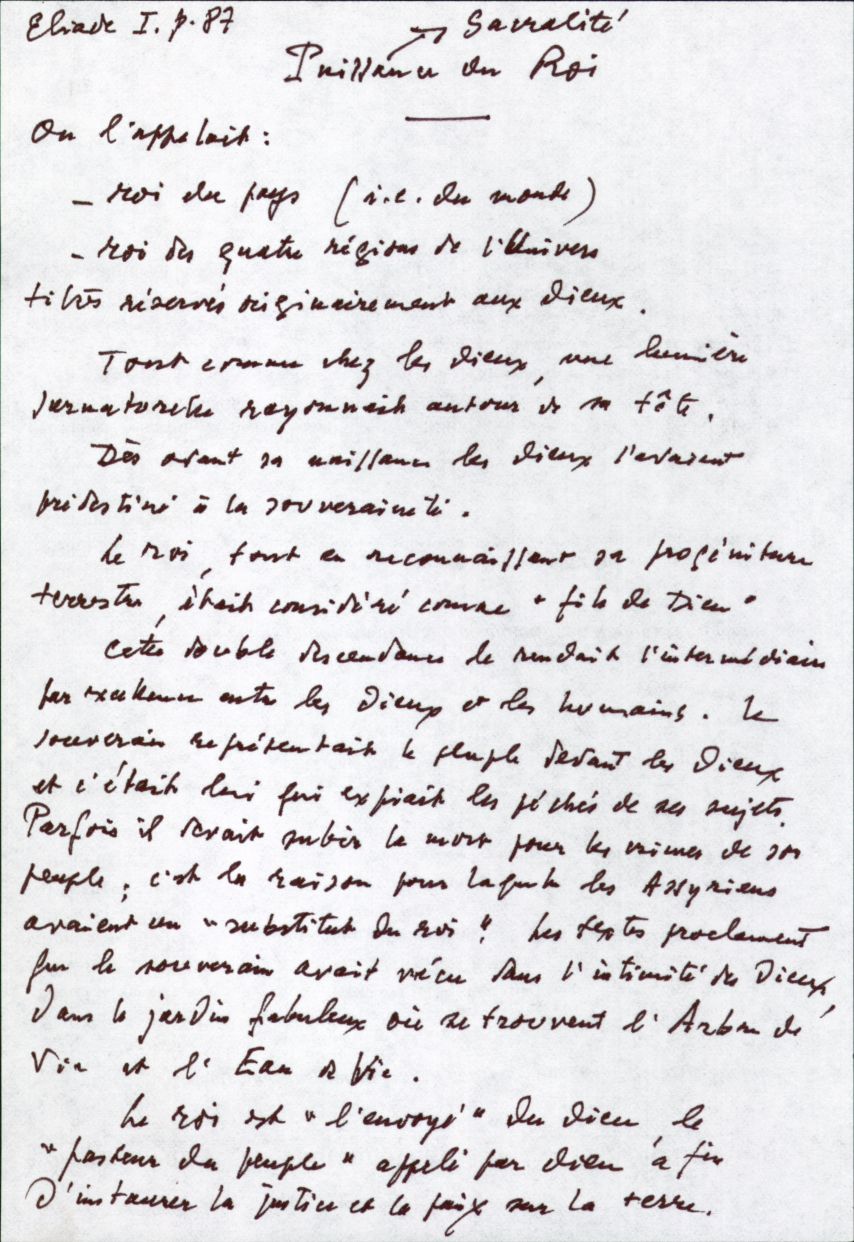 Eliade I. p. 87
→ Sacralité
Puissance du Roi
On l'appelait :
– roi du pays (i.e. du monde)
– roi des quatre régions de l'Univers
titres réservés originairement aux dieux.
Tout comme chez les dieux, une lumière
surnaturelle rayonnait autour de sa tête.
Dès avant sa naissance les dieux l'avaient
prédestiné à la souveraineté.
Le roi, tout en reconnaissant sa progéniture
terrestre, était considéré comme "fils de Dieu"
Cette double descendance le rendait l'intermédiaire
par excellence entre les Dieux et les humains. Le
souverain représentait le peuple devant les Dieux
et c'était lui qui expiait les péchés de ses sujets.
Parfois il devait subir la mort pour les crimes de son
peuple ; c'est la raison pour laquelle les Assyriens
avaient un "substitut du roi". Les textes proclament
que le souverain avait vécu dans l'intimité des Dieux,
dans le jardin fabuleux où se trouvent l'Arbre de
Vie et l'Eau de Vie.
Le roi est "l'envoyé" du dieu le
"pasteur du peuple" appelé par dieu à fin
d'instaurer la justice et la paix sur la terre.